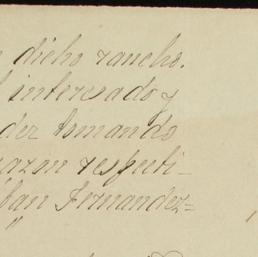 dicho rancho.
interesado y
der tomando
razon respecti-
ban Fernandez=
"